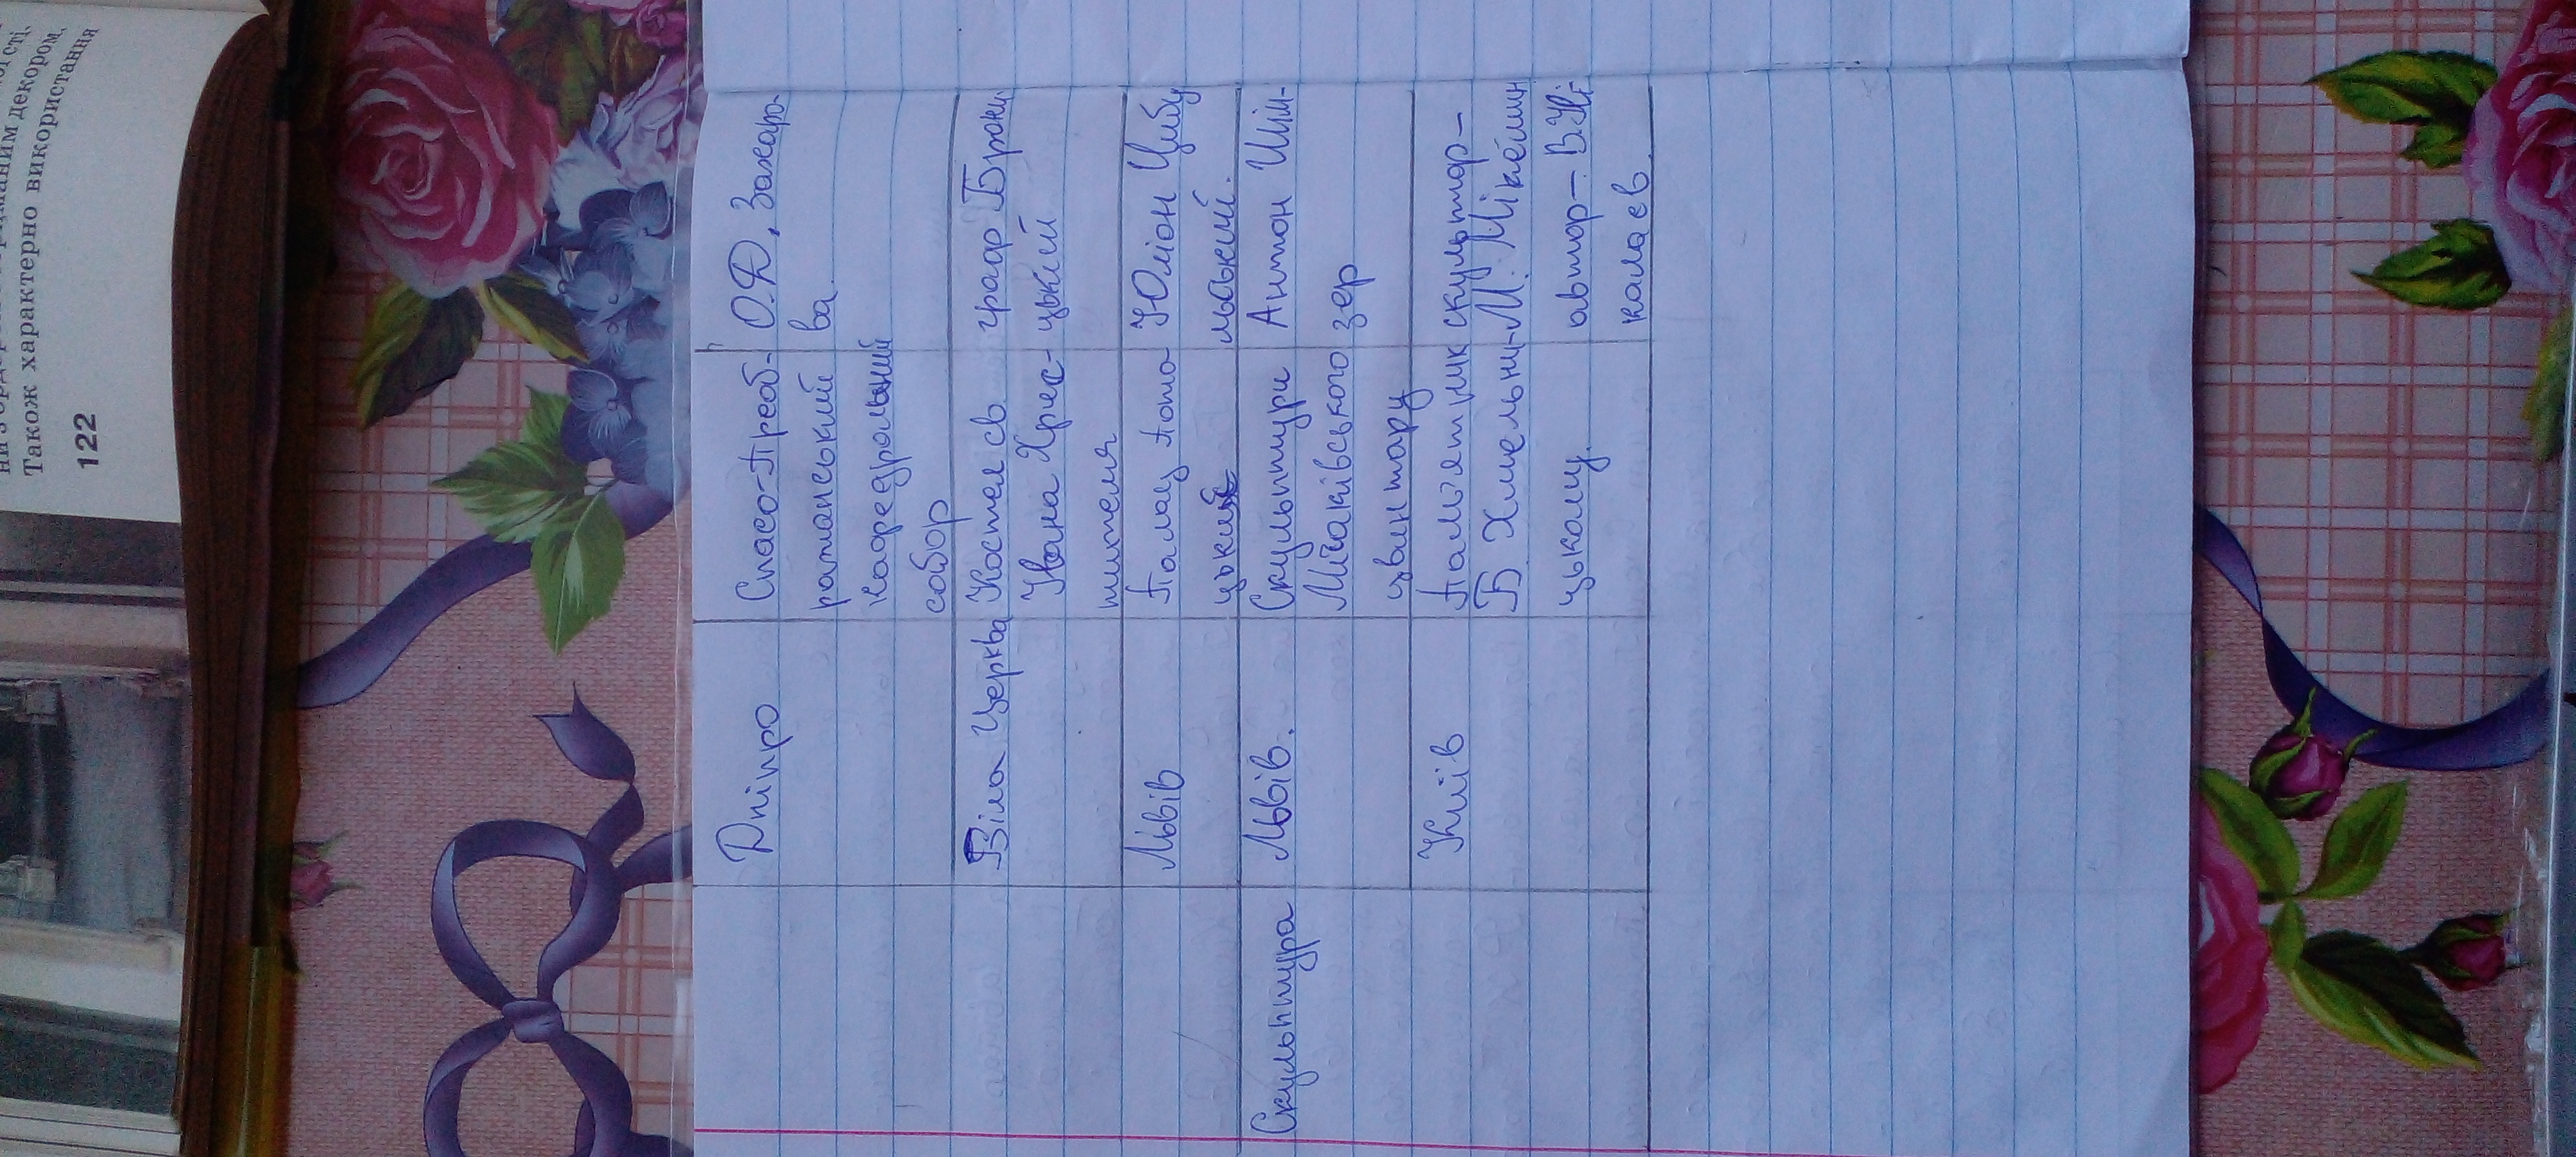 Також характерно використання
122
Дніпро
Спасо-Преоб-
раженський
кафедральний
собор
О.Д. Захаро-
ва
Біла Церква
Костел св.
Івана Хрес-
тителя
граф Брани
цький
Львів
Палац Пото
цький
Юліан Цибу
льський.
Скульптура
Львів.
Скульптури
Личаківського
цвинтару
Антон Шім-
зер
Київ
Пам'ятник
Б. Хмельни-
цькому.
скульптор-
М. Мікешин
автор- В. Ні-
калаєв.